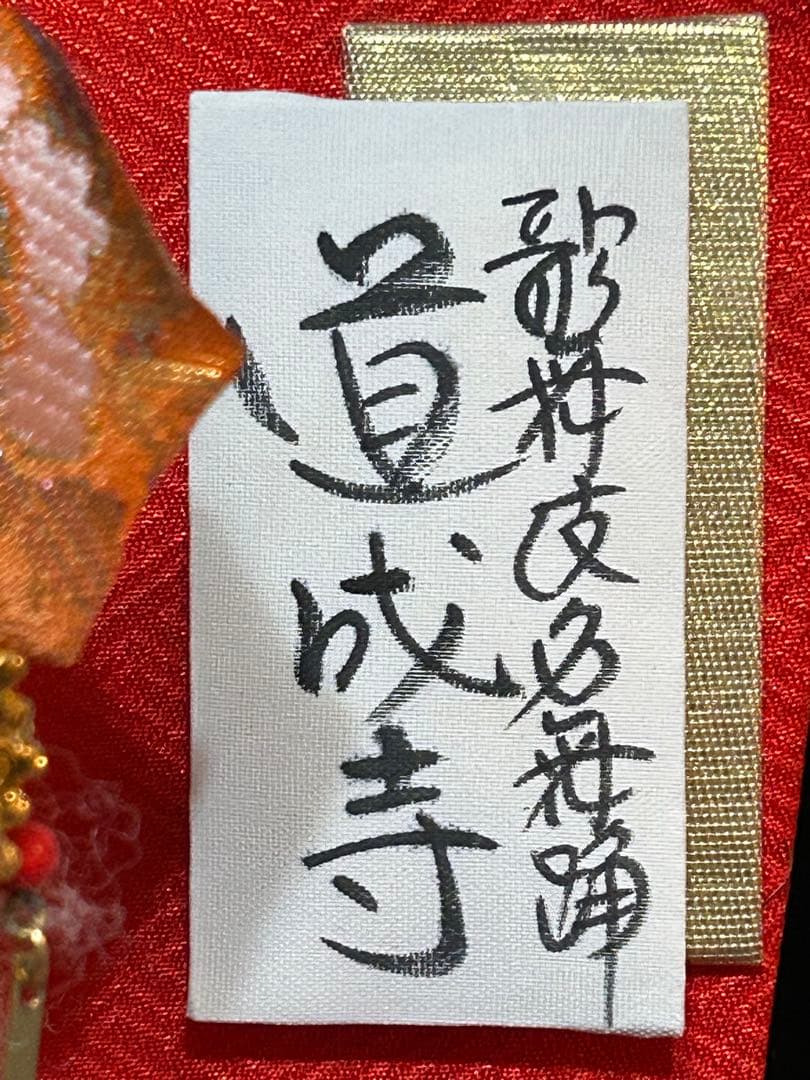 歌舞伎名舞踊
道成寺